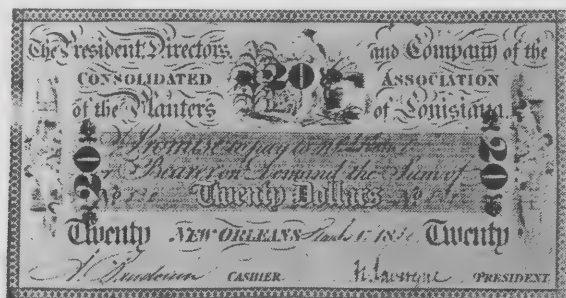 The President, Directors, and Company of the
CONSOLIDATED 20 ASSOCIATION
of the Planters of Louisiana,
Promise to pay to
20 or Bearer on Demand the Sum of 20
No Twenty Dollars No
Twenty NEW ORLEANS Twenty
CASHIER. PRESIDENT.